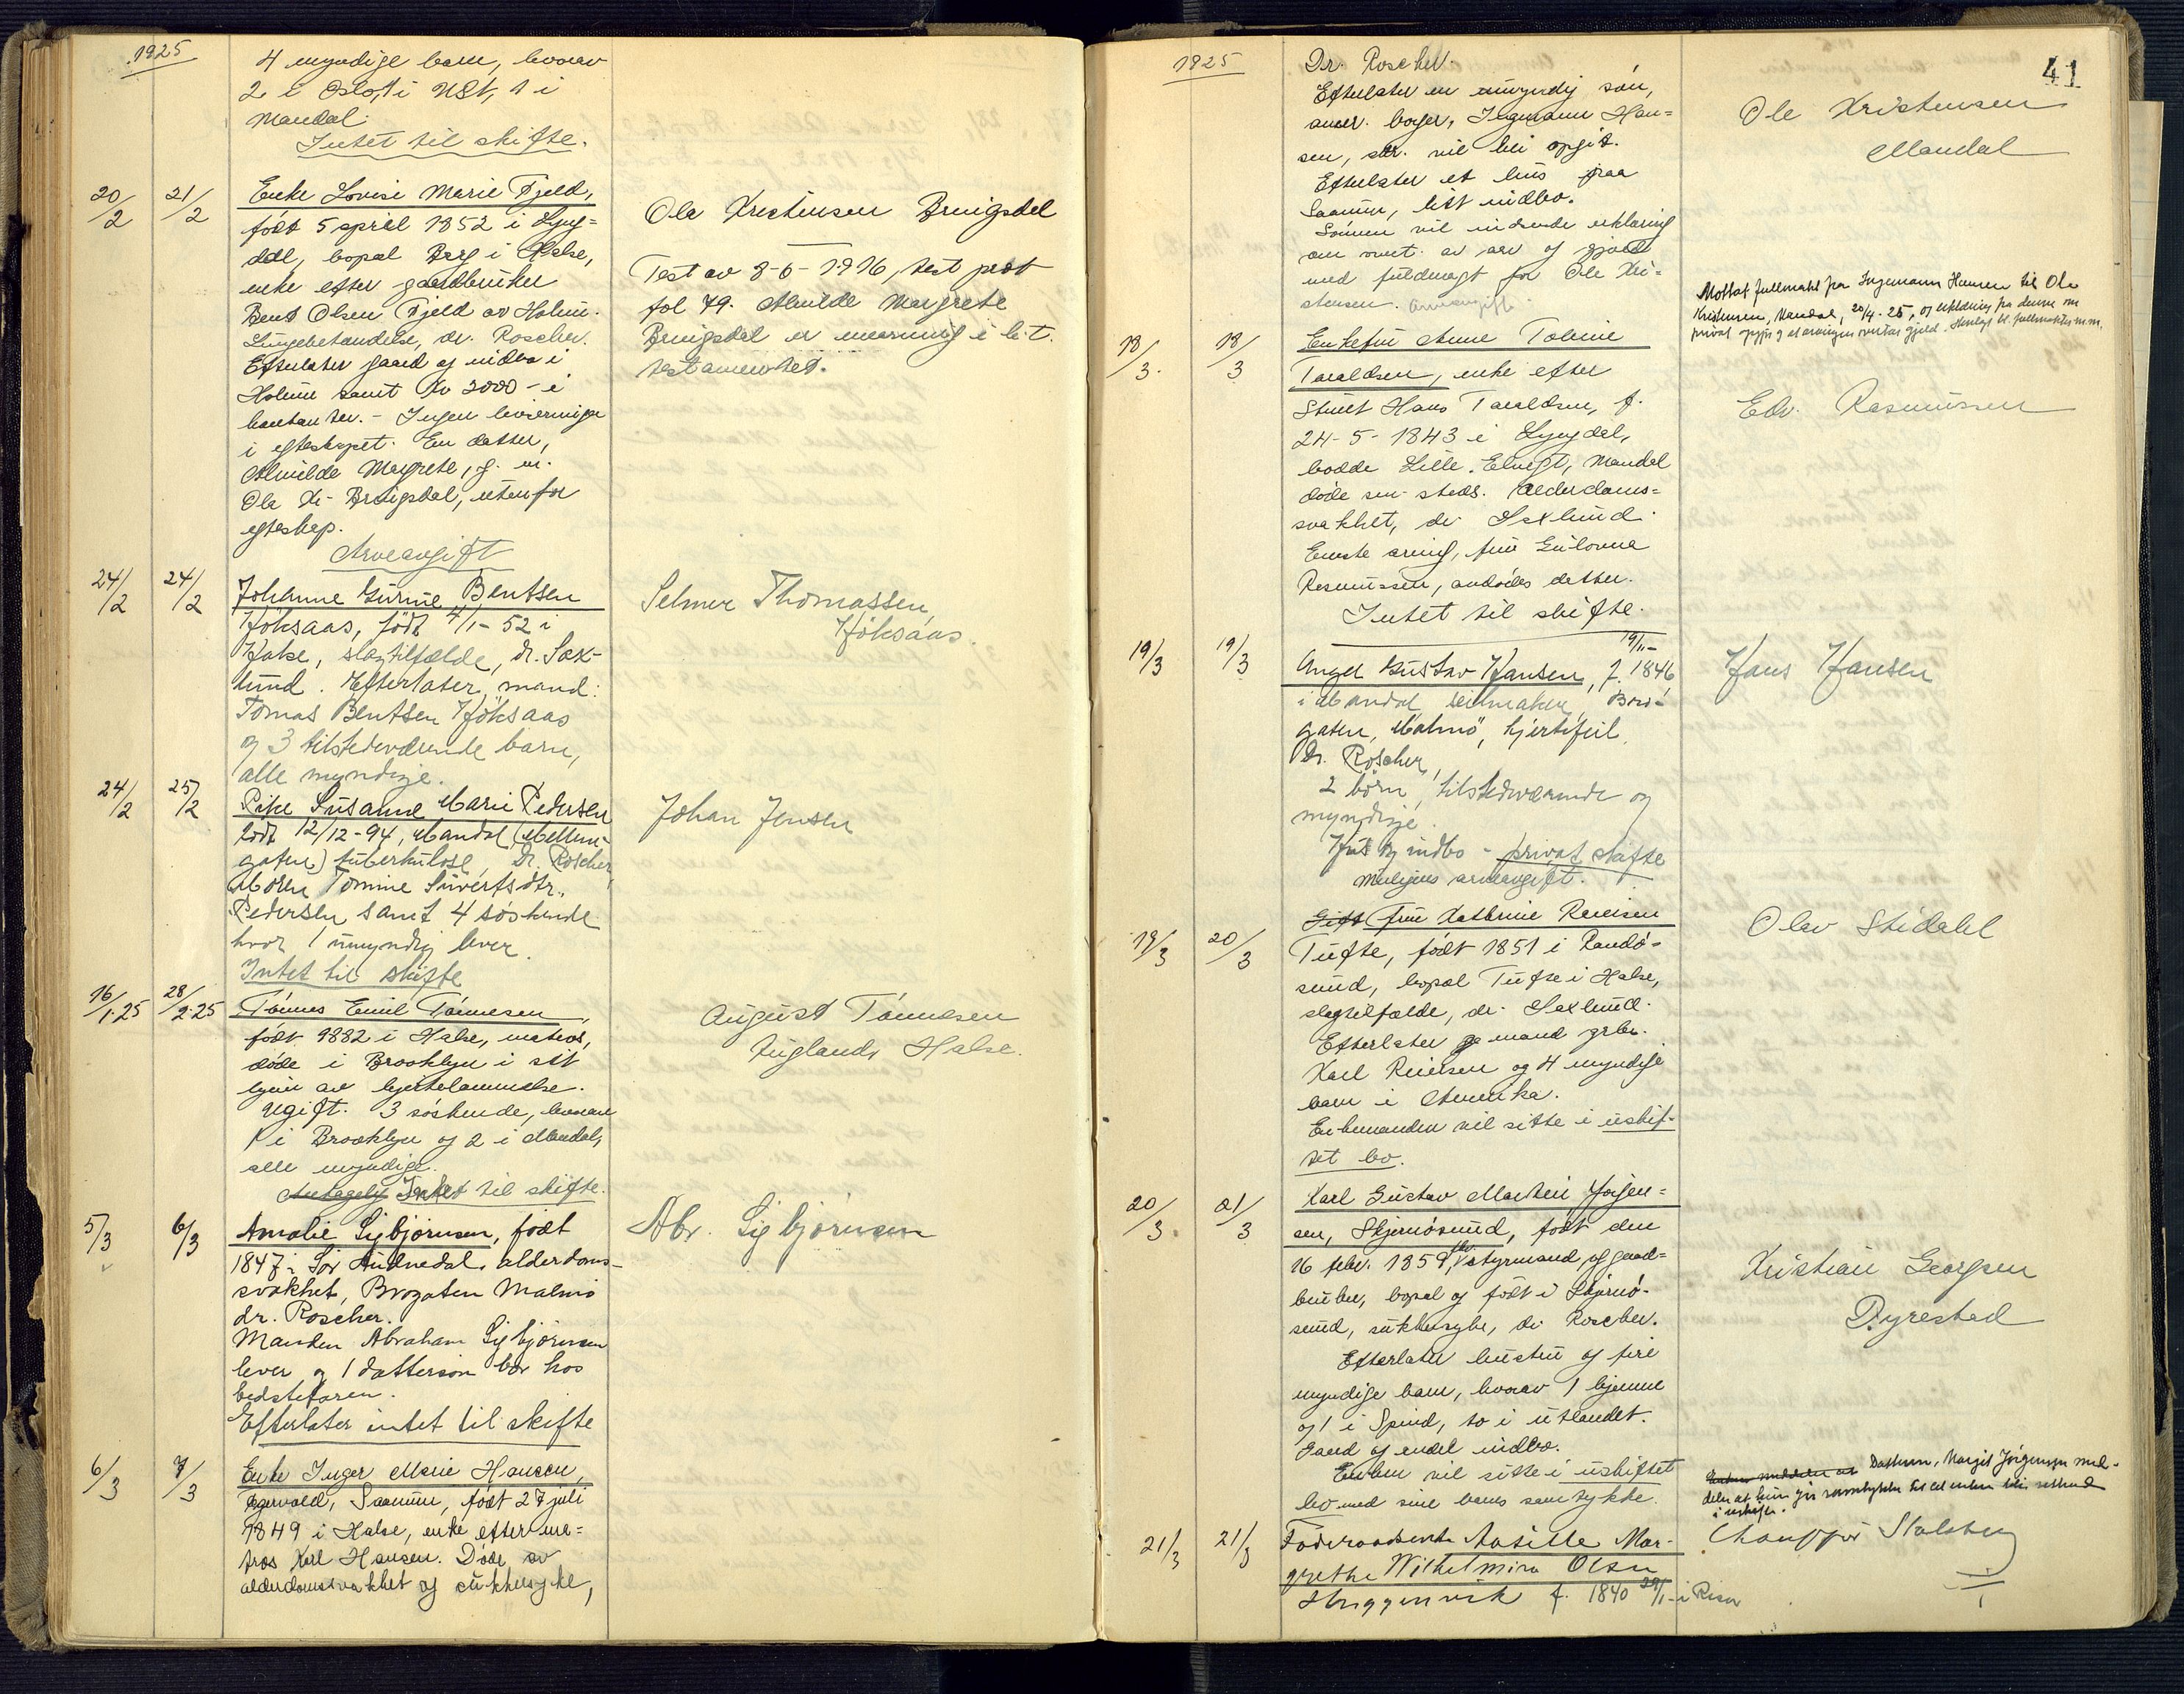 1925
4 myndige barn, hvorav
2 i Oslo, 1 i USA, 1 i
Mandal.
Intet til skifte.
20/2 21/2
Enke Lovise Marie Fjeld,
født 5 april 1852 i Lyng=
dal, bopæl Berg i Halse,
enke efter gaardbruker
Bent Olsen Fjeld av Holum.
Lungebetændelse, dr. Roscher.
Efterlater gaard og indbo i
Holum samt Kr 2000 - i
kontanter. - Ingen livsarvinger
i egteskapet. En datter,
Alvilde Margrete, g. m.
Ole Kr. Bruigsdal, utenfor
egteskap.
Arveavgift
Ole Kristensen Bruigsdal
Test av 8-6-1916, test prot
fol 79. Alvilde Margrete
Bruigsdal er enearving i h. t.
testamentet.
24/2 24/2
Johanne Gurine Bentsen
Høksaas, født 4/1-52 i
Halse, slagtilfælde, dr. Sax-
lund. Efterlater mand:
Tomas Bentsen Høksaas
og 3 tilstedeværende barn,
alle myndige.
Selmer Thomassen
Høksaas.
24/2 25/2
Pike Susanne Marie Pedersen
født 12/12-94, Mandal (Mellem-
gaten) tuberkulose, Dr. Roscher,
Moren Tomine Sivertsdtr.
Pedersen samt 4 søskende
hvor 1 umyndig lever.
Intet til skifte
Johan Jensen
16/1.25 28/2.25
Tønnes Emil Tønnesen,
født 1882 i Halse, matros,
døde i Brooklyn i sit
hjem av hjertelammelse.
Ugift. 3 søskende, hvorav
1 i Brooklyn og 2 i Mandal,
alle myndige.
Antagelig Intet til skifte.
August Tønnesen
Fuglands Halse.
5/3 6/3
Amalie Sigbjørnsen, født
1847 i Sør Audnedal. alderdoms-
svakhet, Brogaten Malmø
dr. Roscher.
Manden Abraham Sigbjørnsen
lever og 1 dattersøn bor hos
bedstefaren.
Efterlater intet til skifte
Abr. Sigbjørnsen
6/3 7/3
Enke Inger Marie Hansen,
Egervold, Saanum, født 27 juli
1849 i Halse, enke efter ma=
tros Karl Hansen. Døde av
alderdomssvakhet og sukkersyke,
1925
41
Dr. Roscher.
Efterlater en umyndig søn,
amer. borger, Ingemann Han=
sen, adr. vil bli opgit.
Efterlater et hus paa
Saanum, litt indbo.
Sønnen vil indsende erklæring
om overt. av arv og gjæld
med fuldmagt for Ole Kri=
stensen. Arveavgift.
Ole Kristensen
Mandal
Mottat fullmakt fra Ingemann Hansen til Ole
Kristensen, Mandal, 20/4-25, og erklæring fra denne om
privat opgjør og at arvingen overtar gjeld. Henlagt bl. fullmakter m.m.
18/3. 18/3
Enkefru Anne Tobine
Taraldsen, enke efter
Stuert Hans Taraldsen, f.
24-5-1843 i Lyngdal,
bodde Lille Elvegt, Mandal
døde sm. steds. Alderdoms=
svakhet, dr. Saxlund.
Eneste arving, fru Gulovna
Rasmussen, avdødes datter.
Intet til skifte.
Edv. Rasmussen
19/3 19/3
19/11-
Angel Gustav Hansen, f. 1846
i Mandal, seilmaker, Bro-
gaten, Malmø, hjertefeil.
Dr. Roscher,
2 børn, tilstedeværende og
myndige.
Hus og indbo - privat skifte
muligens arveavgift.
Hans Hansen
19/3 20/3
Gift Fru Kathrine Reiersen
Tufte, født 1851 i Randø-
sund, bopæl Tufte i Halse,
slagtilfælde, dr. Saxlund.
Efterlater mand grbr.
Karl Reiersen og 4 myndige
barn i Amerika.
Enkemanden vil sitte i uskif-
tet bo.
Olav Stidahl
20/3. 21/3
Karl Gustav Martin Jørgen=
sen, Skjernøsund, født den
16 febr. 1859, styrmand og gaard=
bruker, bopæl og født i Skjernø-
sund, sukkersyke, dr. Roscher.
Efterlater hustru og fire
myndige barn, hvorav 1 hjemme
og 1 i Spind, to i utlandet.
Gaard og endel indbo.
Enken vil sitte i uskiftet
bo med sine barns samtykke.
Kristian Georgsen
Dyrestad
Enken meddeler at Datteren, Margit Jørgensen med-
deler at hun gir samtykke til at enken blir sittende
i uskifte.
21/3 21/3
Føderaadsenke Anstille Mar-
grethe Wilhelmine Olsen
Skoggenvik f. 1840 29/1- i Risør
Chauffør Stolsberg